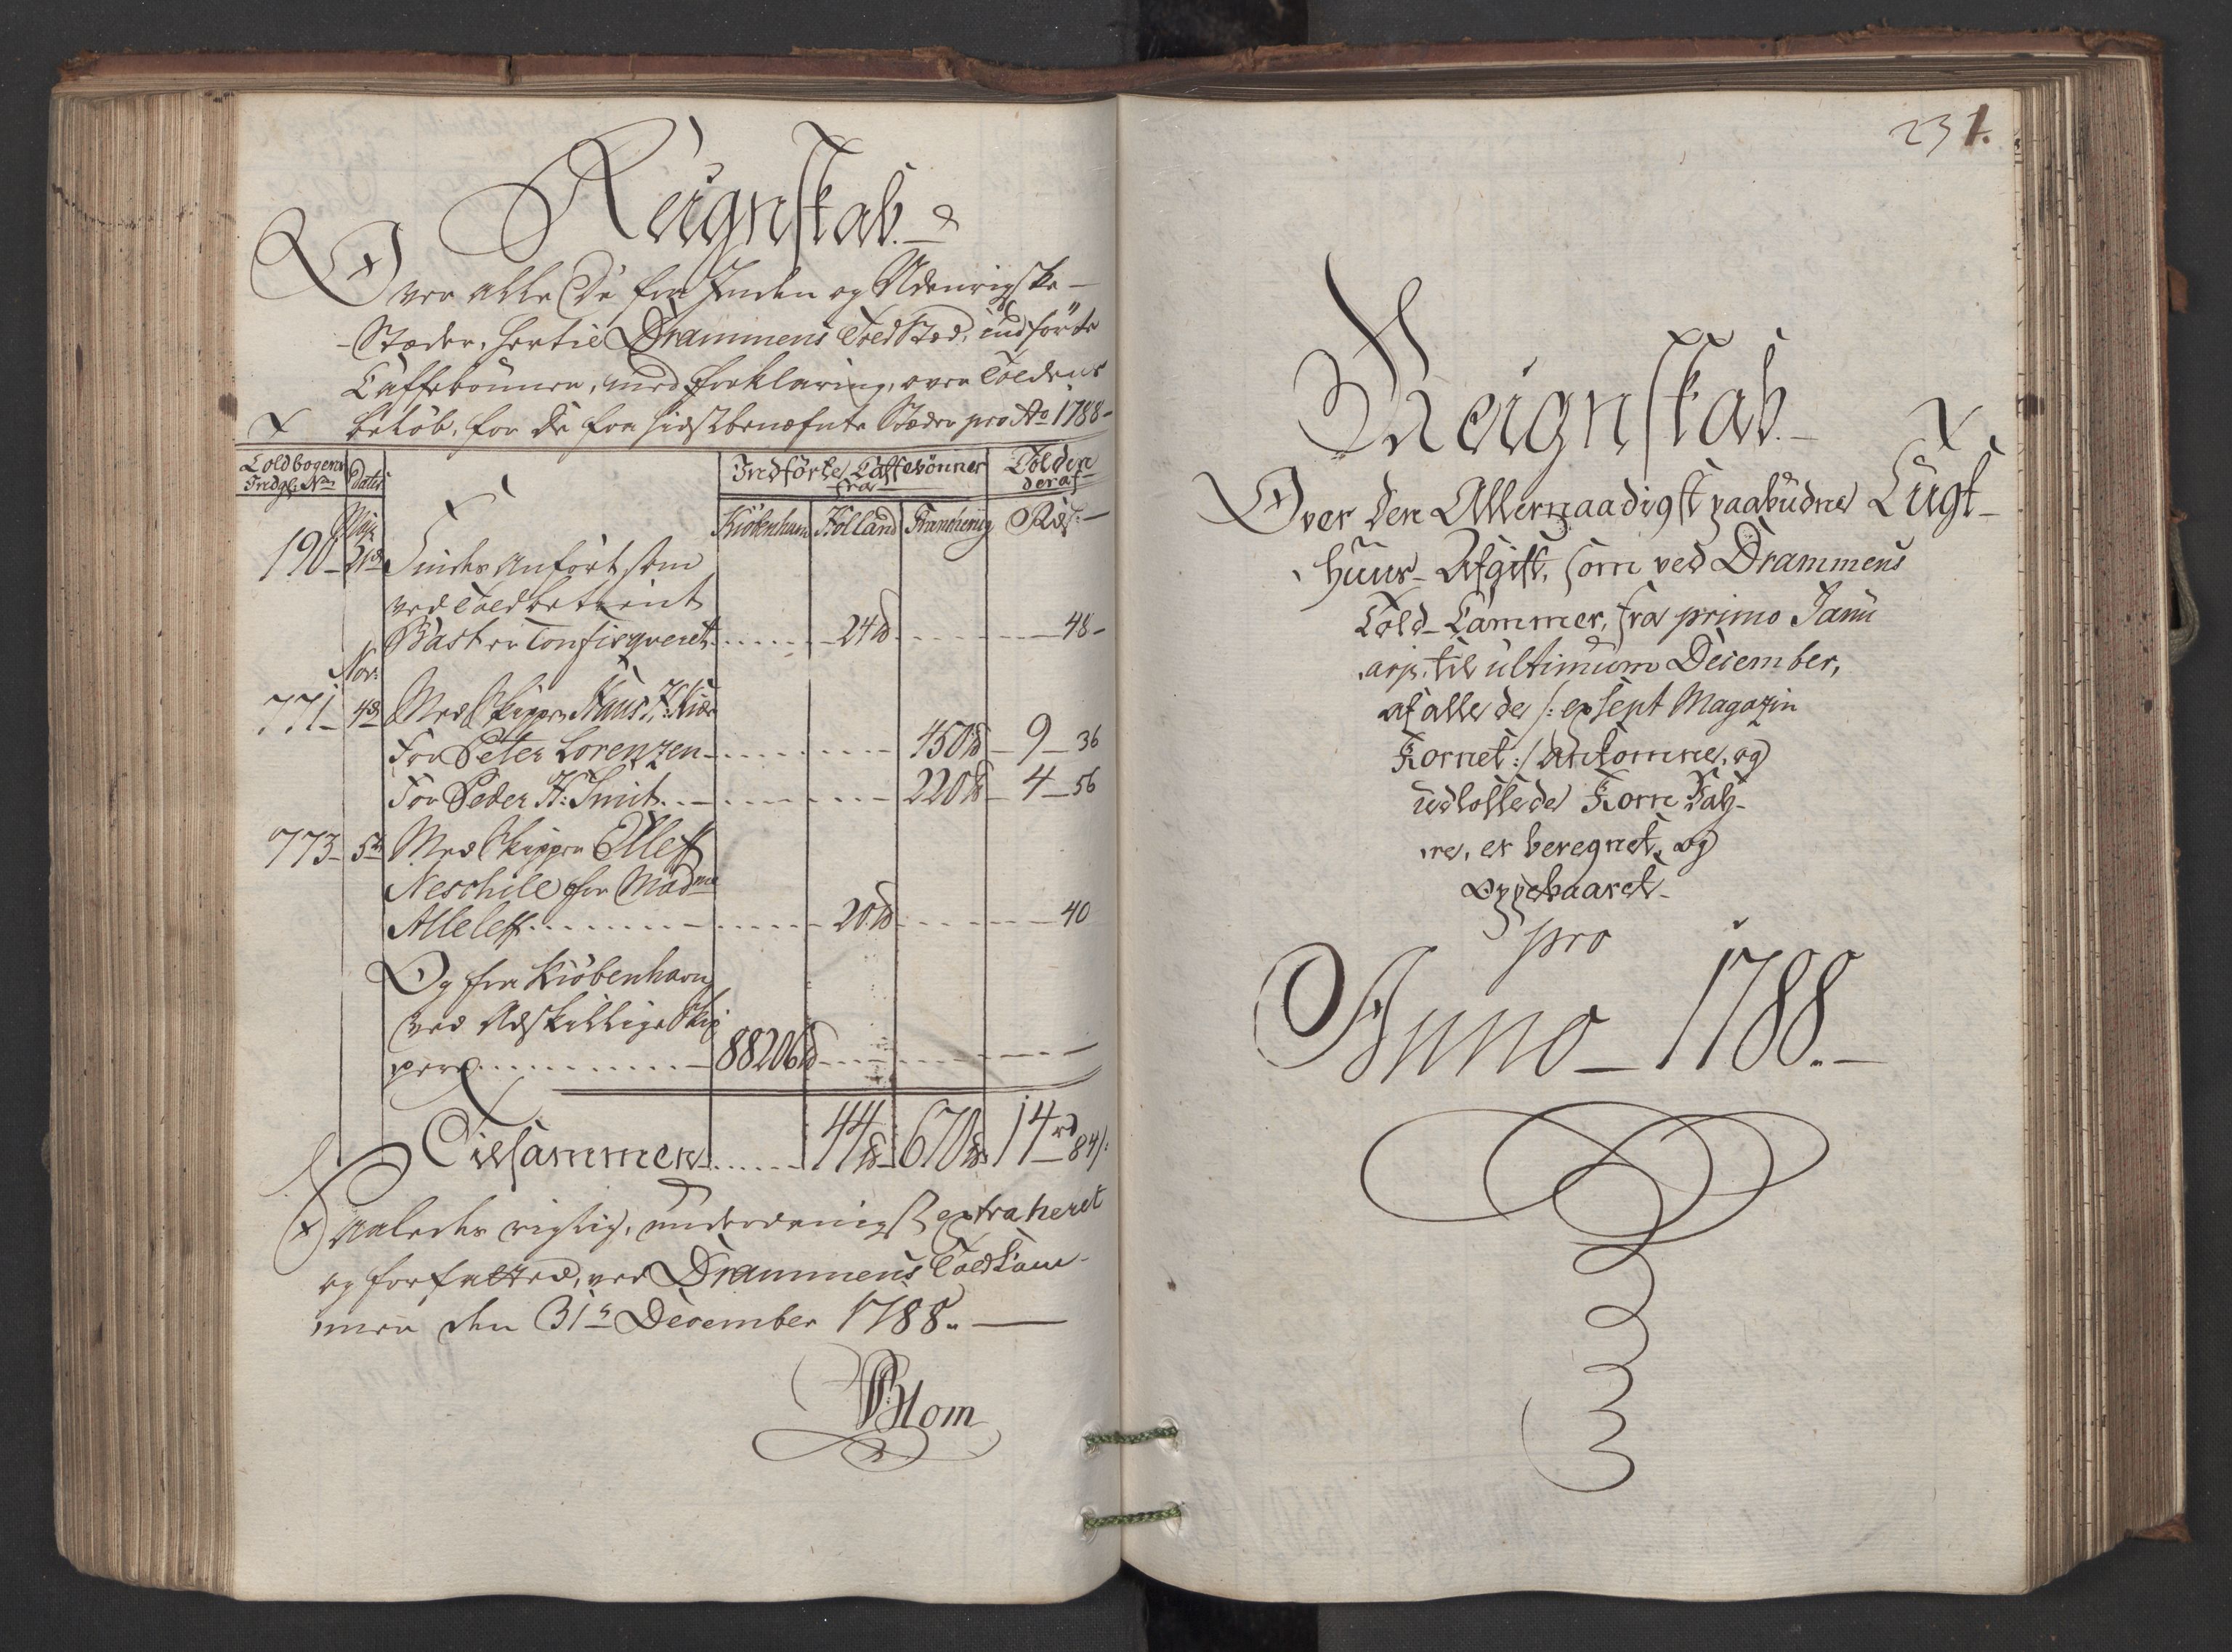 Reignskab
Over alle De fra Inden og Udenrigske
Stæder, hertil Drammens Told Stæd, indförte
Caffebönner, med Forklaring, over Toldens
beløb, for De fra sidstbenæfnte Stæder pro Ao 1788
Toldbogens Indg: No
Dato
Indförte Caffebönner fra
Tolden deraf
Kiöbenhavn Holland Frankerig Rdl:
Maji
190 21de Findes anfört som
ved Toldbetient
Bast er Confisqveret 24 ℔ 48
Nov:
771 4de Med Skipper Haus H: Kiær
For Peter Lorenzen 450 ℔ 9 36
For Peder H: Smit 220 ℔ 4 56
773 5te Med Skipper Ellef
Neschile for Madme
Allelef 20 ℔ 40
Og fra Kiöbenhavn
ved Adskillige Skip
pere 88206 ℔
Tilsammen 44 ℔ 670 ℔ 14 rd 84 s:
Saaledes rigtig, underdanigst extraheret
og forfatted, ved Drammens Told Cam
mer den 31te December 1788.
Blom
231.
Reignskab
Over den Allernaadigst paabudne Tugt
Huus Afgift, som ved Drammens
Told Cammer, fra primo Janu
arj, til ultimum December,
af alle de /: exsept Magazin
Kornet :/ ankomne, og
udlossede Korn Vah
re, er beregnet, og
Oppebaaret
pro
Anno 1788.